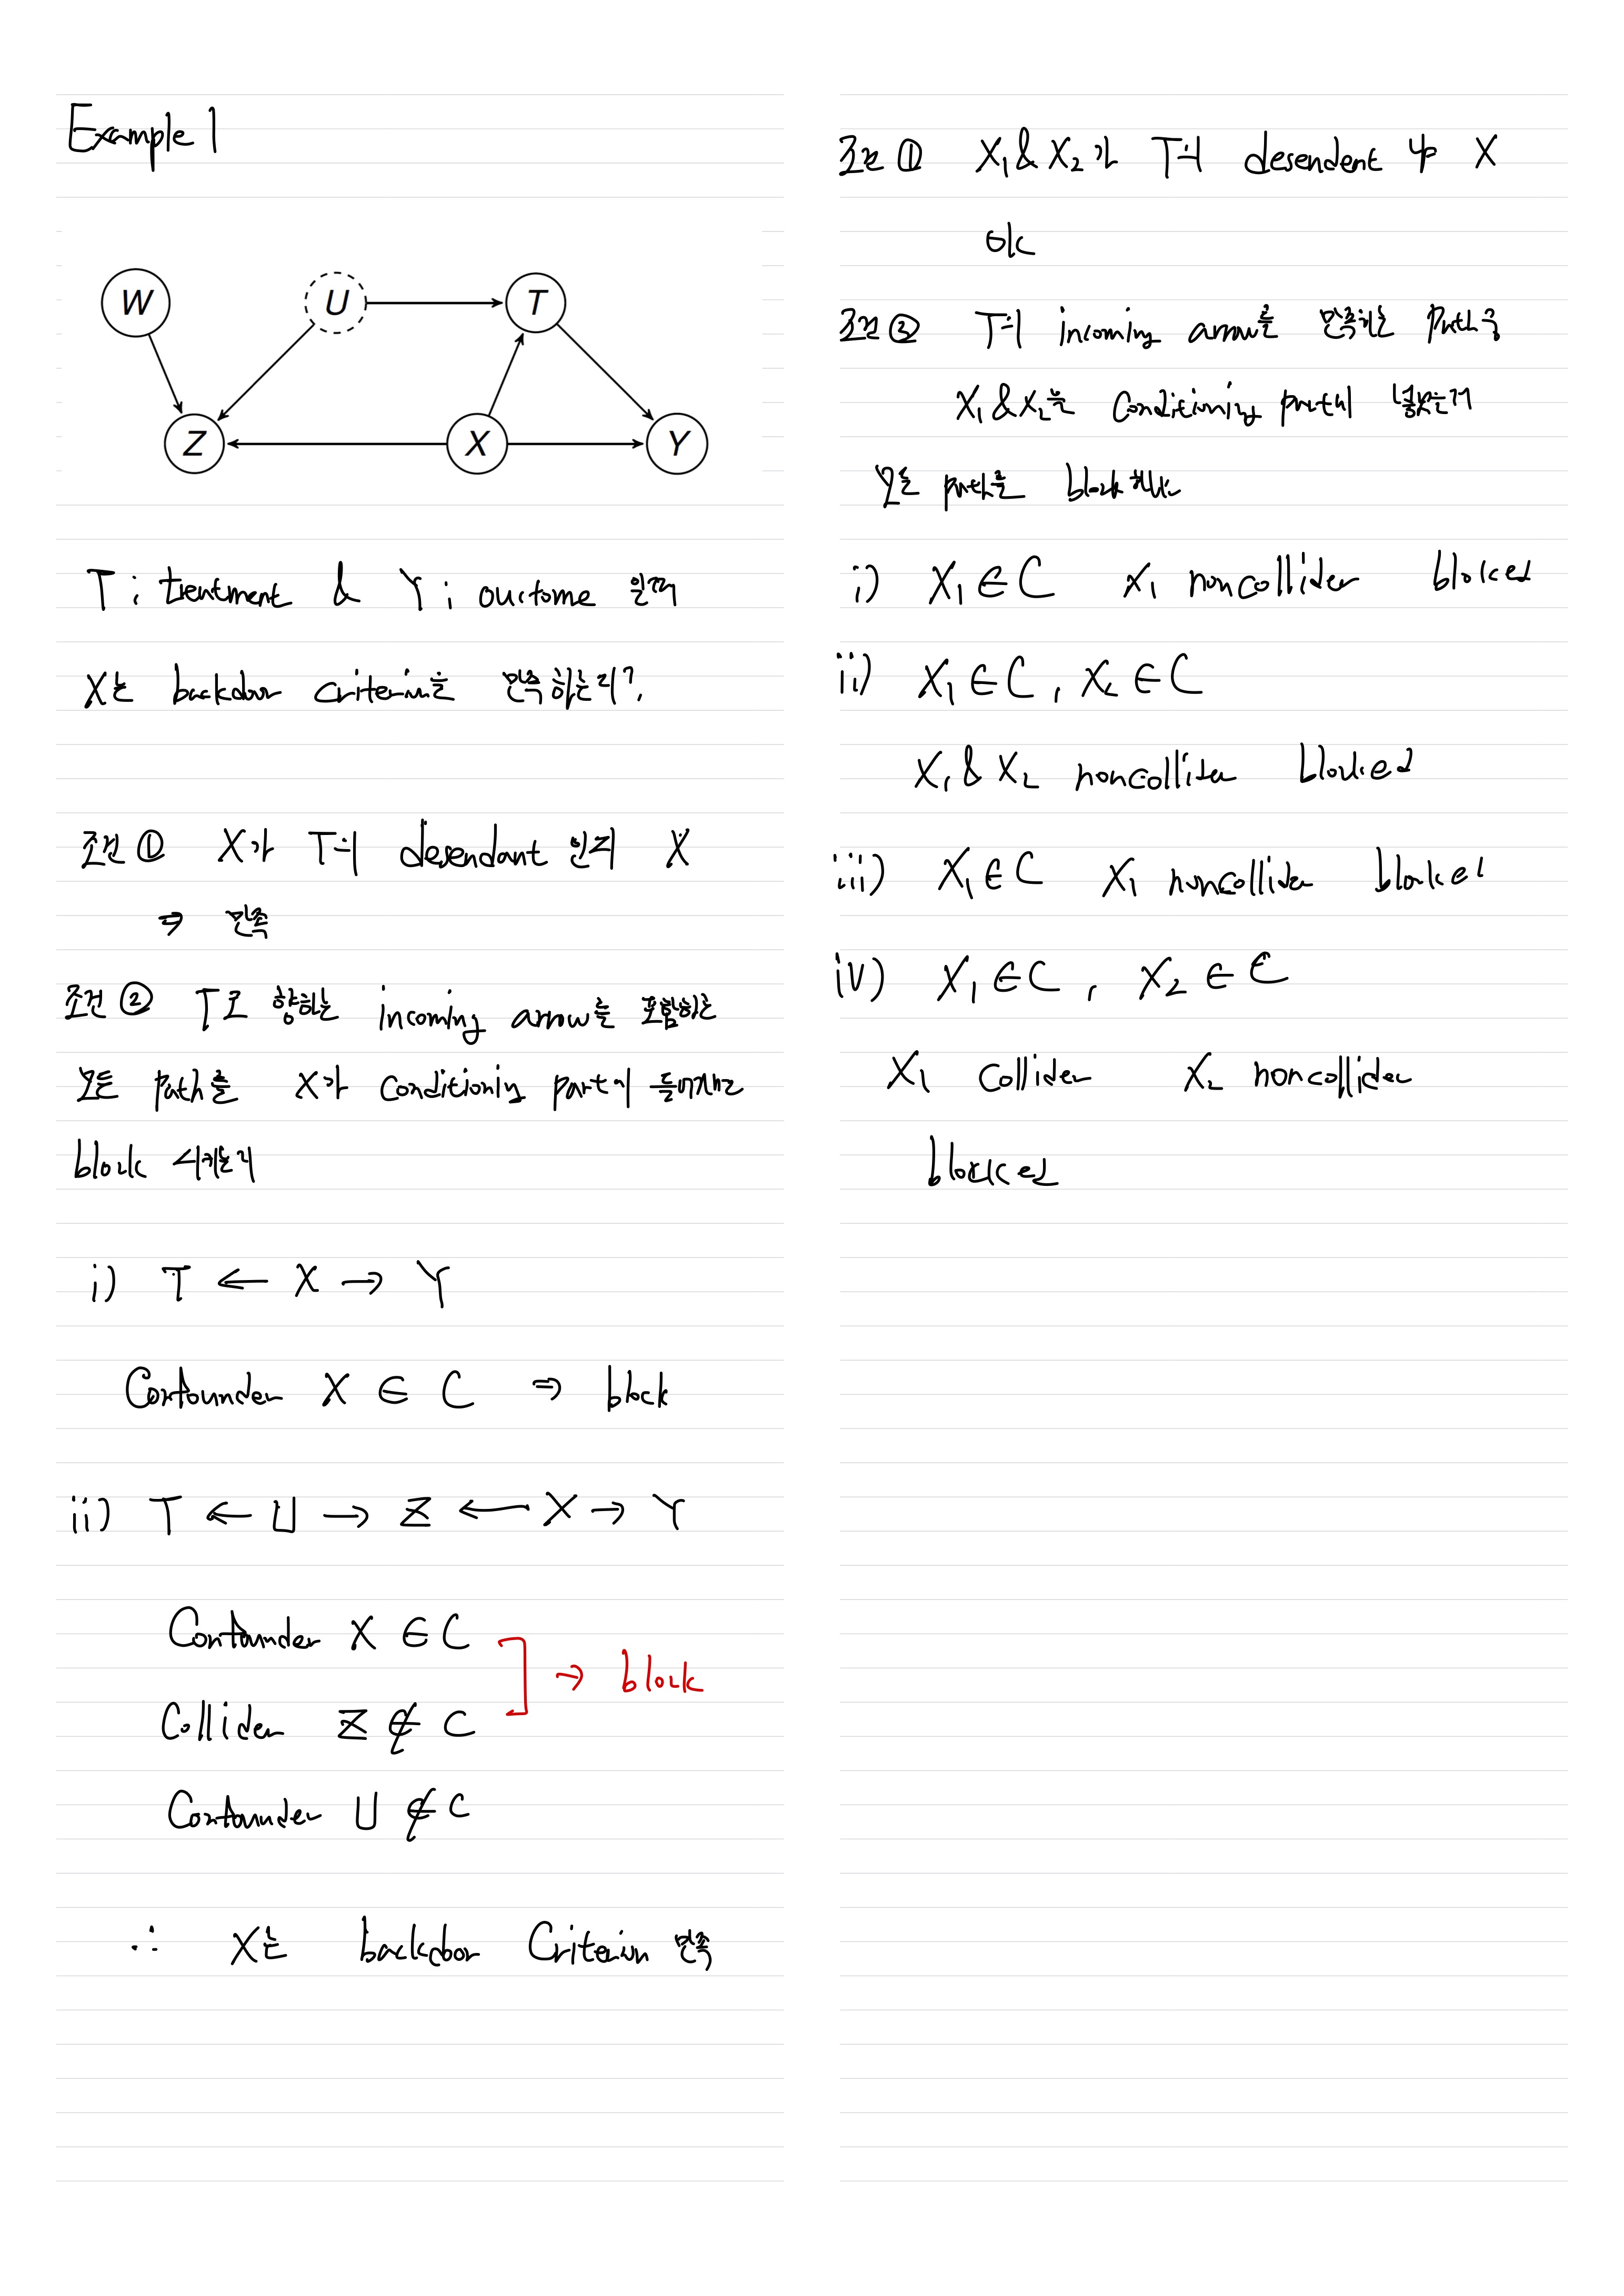 Example 1
W U T
Z X Y
T : treatment & Y : ouctome 일때
X는 backdoor criterion을 만족하는지?
조건 ① X가 T의 desendant 인지 X
⇒ 만족
조건 ② T로 향하는 incoming arrow를 포함하는
모든 path를 X가 conditioning part에 들어가면
block 시키는지
i) T ← X → Y
Confounder X ∈ C ⇒ block
ii) T ← U → Z ← X → Y
Confounder X ∈ C
Collider Z ∉ C
→ block
Confounder U ∉ C
∴ X는 backdoor Criterion 만족
조건 ① X₁ & X₂가 T의 desendent X
ok
조건 ② T의 incoming arrow를 만족하는 path 중
X₁ & X₂를 Conditioning part에
모든 path를 block
i) X₁ ∈ C X₁ noncollider blocked
ii) X₁ ∈ C , X₂ ∈ C
X₁ & X₂ noncollider blocked
iii) X₁ ∈ C X₁ noncollider blocked
iv) X₁ ∈ C , X₂ ∈ C
X₁ collider X₂ noncollider
blocked